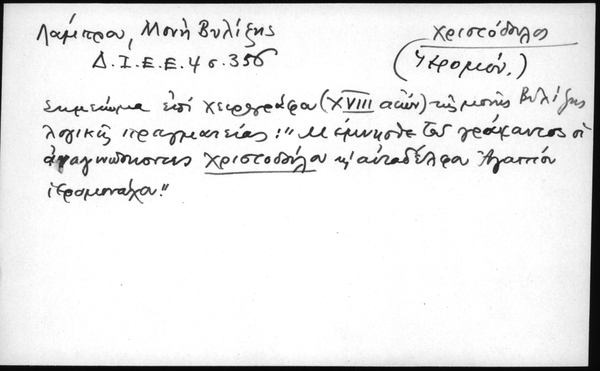 Λάμπρου, Μονὴ Βυλίζης
Δ.Ι.Ε.Ε. 4 σ. 356
Χριστόδουλος
(Ἱερομόν.)
Σημείωμα ἐπὶ χειρογράφου (XVIII αἰῶν) τῆς μονῆς Βυλίζης
λογικῆς πραγματείας: "Μέμνησθε τοῦ γράψαντος οἱ
ἀναγινώσκοντες Χριστοδούλου κ̀ αὐταδέλφου Ἀγαπίου
ἱερομονάχου."